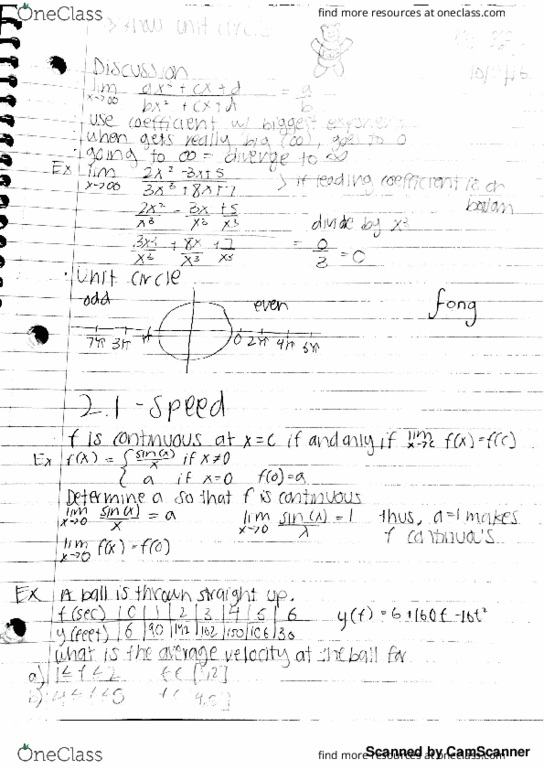 OneClass
find more resources at oneclass.com
unit circle
Discussion
lim x→∞ ax² + cx + d / bx² + cx + d = a/b
use coefficient w/ biggest exponent
when gets really big (∞), goes to 0
going to ∞ = diverge to ∞
Ex lim x→∞ 2x² - 3x+5 / 3x³ + 8x+7 > if leading coefficient is on
2x²/x³ - 3x/x³ + 5/x³ divide by x³
3x³/x³ + 8x/x³ + 7/x³ = 0/3 = 0
· Unit Circle
odd even fong
7π 3π π 0 2π 4π
2.1 - Speed
f is continuous at x=c if and only if lim x→c f(x)=f(c)
Ex f(x) = { sin(x)/x if x≠0
a if x=0 f(0)=a
Determine a so that f is continuous
lim x→0 sin(x)/x = a lim x→0 sin(x)/x = 1 thus, a=1 makes
lim x→0 f(x) = f(0) f
Ex A ball is thrown straight up.
t(sec) | 0 | 1 | 2 | 3 | 4 | 5 | 6 y(t) = 6+160t-16t²
y(feet) | 6 | 90 | 142 | 162 | 150 | 106 | 30
What is the average velocity at the ball for
a) 1≤t≤2 t∈[1,2]
b)
OneClass
find more resources at oneclass.com
Scanned by CamScanner